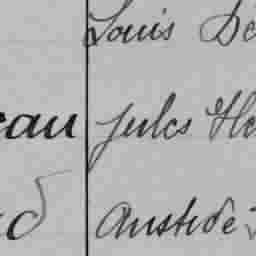 Louis Dé
eau Jules He
Aristide